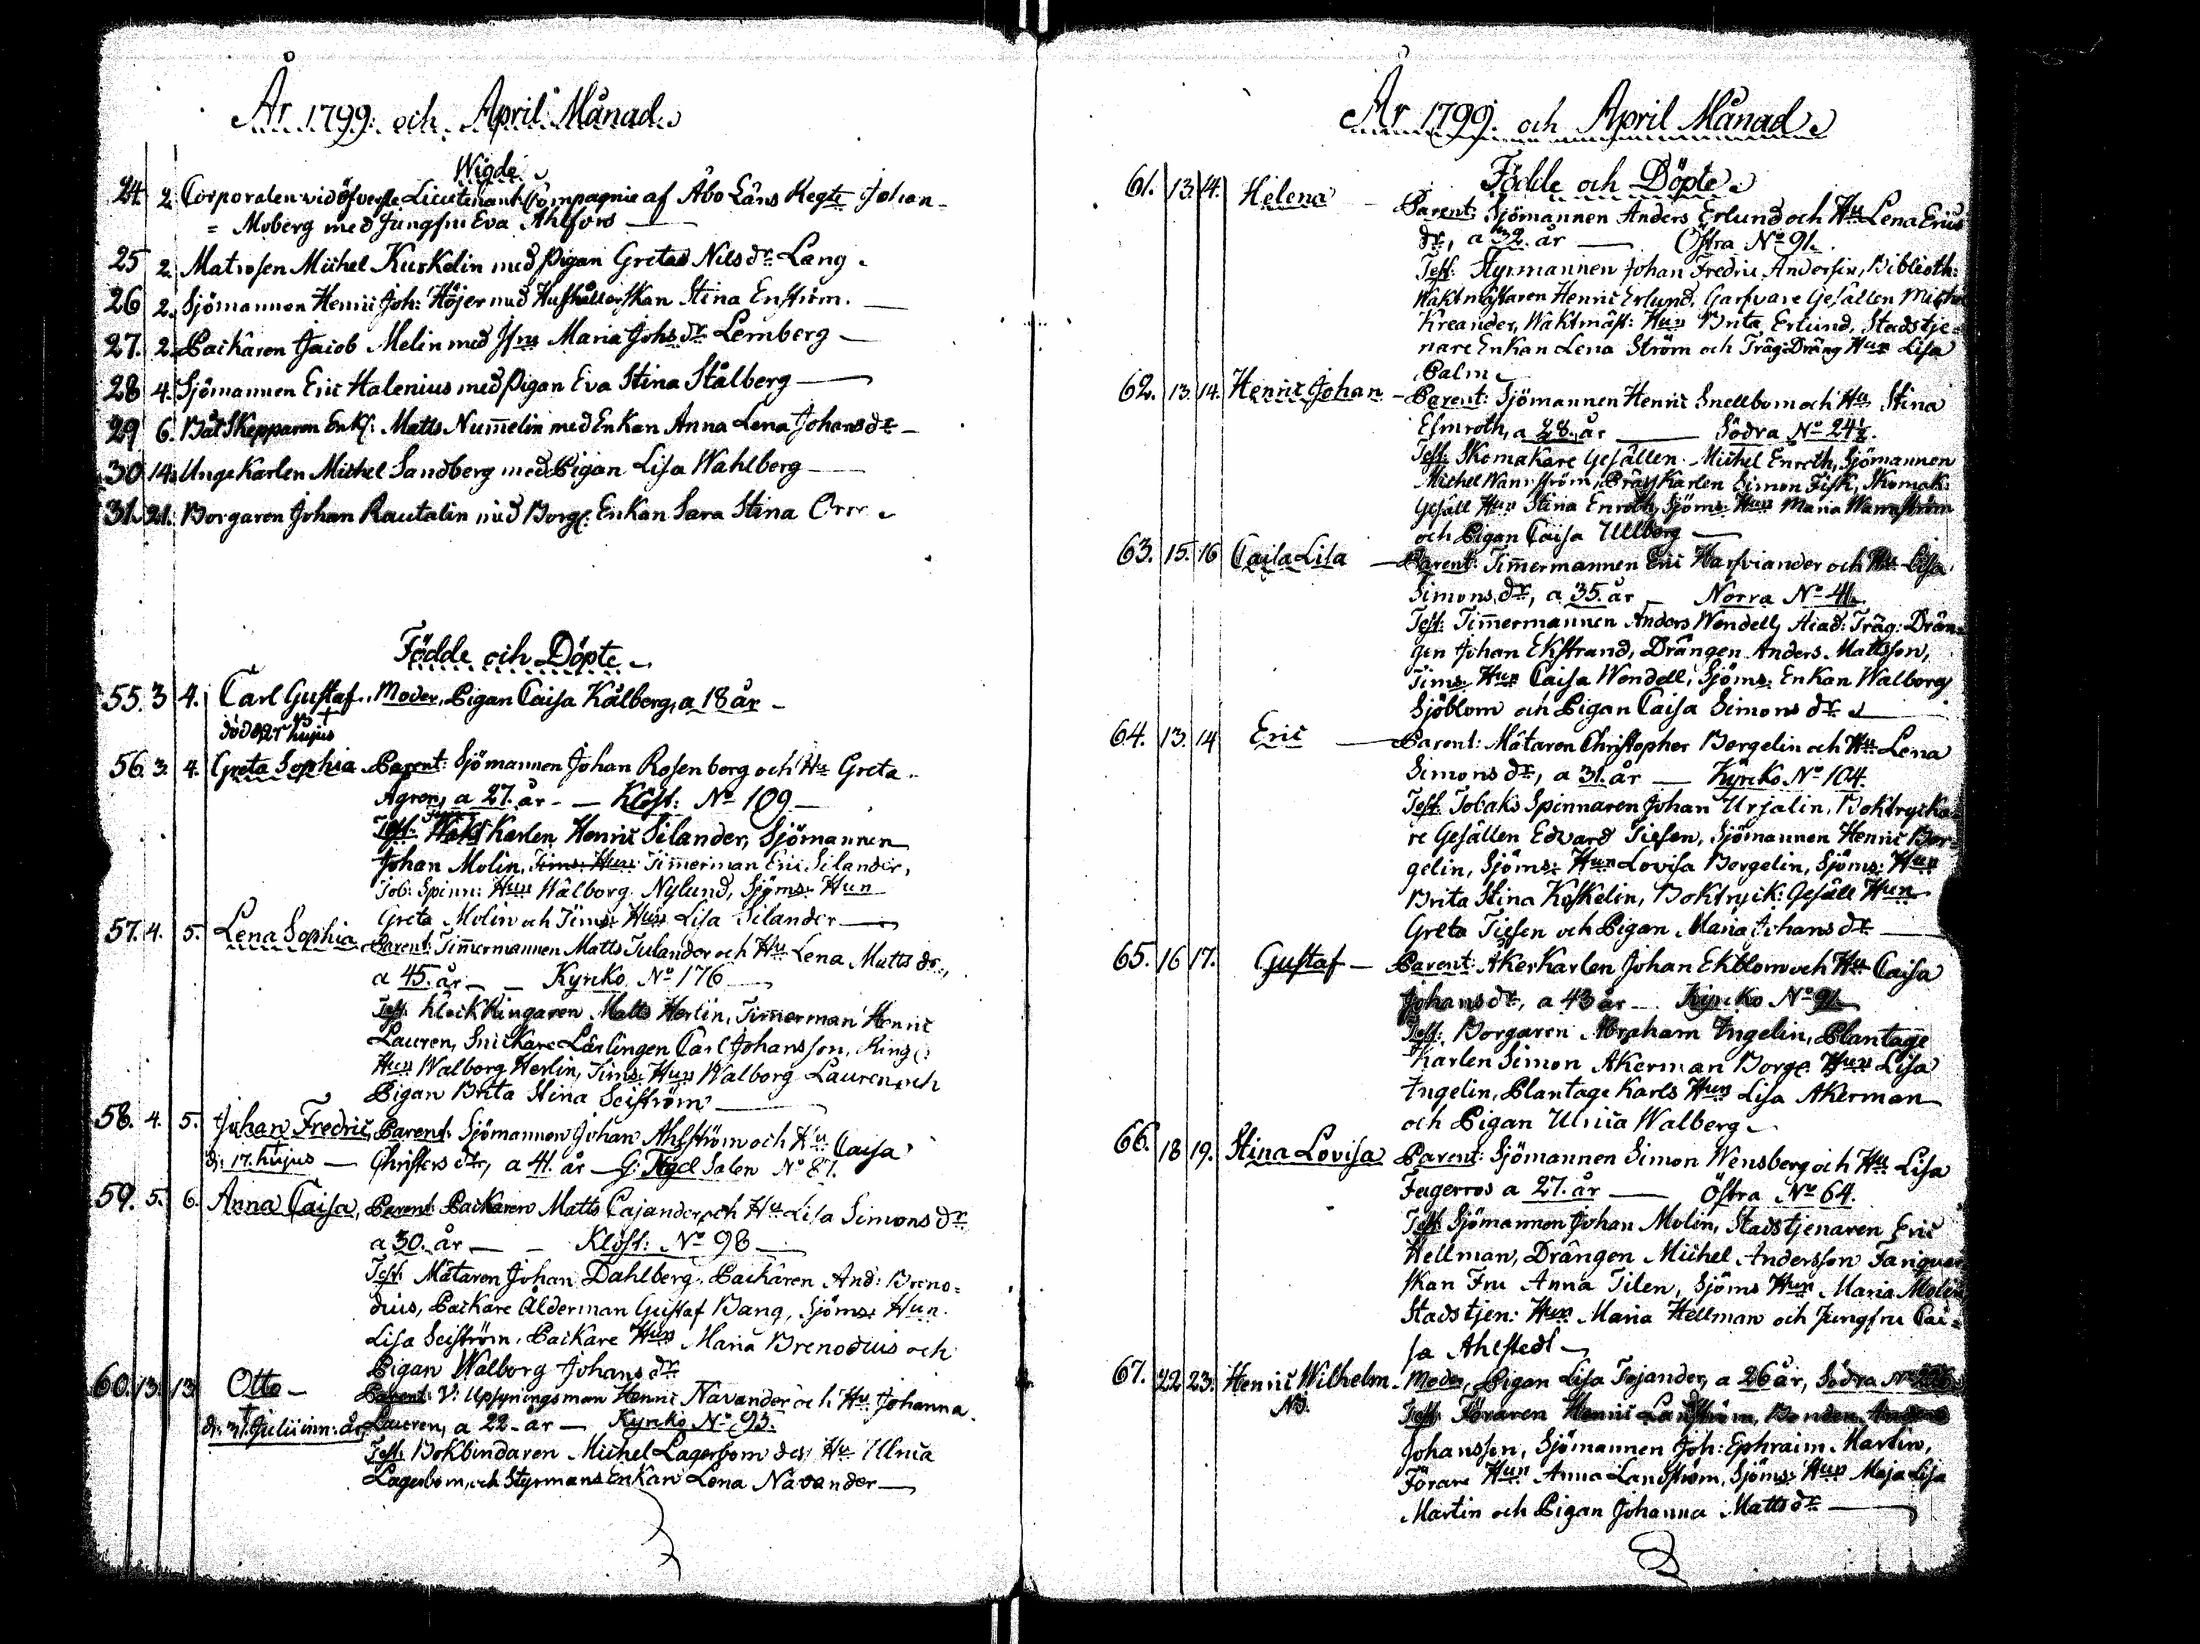 År 1799. och April Månad.
Wigde.
24. 2. Corporalen wid öfverste Lieutenant Compagnie af Åbo Läns Regte Johan
= Moberg med Jungfru Eva Ahlfors —
25 2. Matrosen Michel Kuskelin med Pigan Greta Nils dr Lang.
26 2. Sjömannen Henric Joh: Höjer med Hushållerskan Stina Enström. —
27. 2. Packaren Jacob Melin med Jfru Maria Johs dr Lemberg —
28 4. Sjömannen Eric Halenius med Pigan Eva Stina Stålberg —
29 6. Båt Skepparen Enkl: Matts Num̄elin med Enkan Anna Lena Johans dr —
30 14. Unge Karlen Michel Sandberg med Pigan Lisa Wahlberg —
31. 21. Borgaren Johan Rautalin med Borg: Enkan Sara Stina Orre.
Födde och Döpte.
55. 3 4. Carl Gustaf. Moder, Pigan Caisa Kålberg, a 18 år —
död hujus
56. 3. 4. Greta Sophia. Parent: Sjömannen Johan Rosenberg och Hu Greta
Agren, a 27. år — Klöst: No 109 —
Test. Karlen Henric Silander, Sjömannen
Johan Molin, Tims: Hun Tim̄erman Eric Silander,
Tob: Spinn: Hun Wålborg Nylund, Sjöms: Hun
Greta Molin och Tims: Hun Lisa Silander —
57. 4. 5. Lena Sophia Parent: Tim̄ermannen Matts Julander och Hu Lena Matts dr,
a 45. år — Kyrko No 176 —
Test. Klockringaren Matts Herlin, Tim̄erman Henric
Lauren, Snickare Lärlingen Carl Johansson, Ring:
Hun Walborg Herlin, Tims: Hun Walborg Lauren och
Pigan Brita Stina Seiström —
58. 4. 5. Johan Fredric, Parent: Sjömannen Johan Ahlström och Hu Caisa
d: 17. hujus — Christers dr, a 41. år — Salen No 87.
59. 5. 6. Anna Caisa, Parent: Packaren Matts Cajander och Hu Lisa Simons dr
a 30. år — Klöst: No 98 —
Test. Mätaren Johan Dahlberg, Packaren And: Breno=
dius, Packare Ålderman Gustaf Bang, Sjöms: Hun
Lisa Seiström, Packare Hun Maria Brenodius och
Pigan Walborg Johans dr
60. 13. 13 Otto — Parent: V: Upsyningsman Henric Navander och Hu Johanna
Lauren, a 22. år — Kyrko No 93.
Test. Bokbindaren Michel Lagerbom des Hu Ulrica
Lagerbom, och Styrmans Enkan Lena Navander —
År 1799. och April Månad.
Födde och Döpte.
61. 13. 14. Helena Parent: Sjömannen Anders Erlund och Hu Lena Erics
dr, a 32. år — Östra No 91.
Test: Styrmannen Johan Fredric Andersin, Biblioth:
Waktmästaren Henric Erlund, Garfvare Gesällen Michel
Kreander, Waktmäst: Hun Brita Erlund, Stadstje=
nare Enkan Lena Ström och Träg: Dräng Hun Lisa
Palm.
62. 13. 14. Henric Johan — Parent: Sjömannen Henric Snellbom och Hu Stina
Elmroth, a 28. år — Södra No 24½.
Test: Skomakare Gesällen Michel Enroth, Sjömannen
Michel Wannström, Karlen Simon Fisk, Skomak:
Gesäll Hun Stina Enroth, Sjöms: Hun Maria Wannström
och Pigan Caisa Ullberg —
63. 15. 16 Caisa Lisa — Parent: Tim̄ermannen Eric Harfviander och Hu Lisa
Simons dr, a 35. år — Norra No 41.
Test: Tim̄ermannen Anders Wendell, Acad: Träg: Drän=
gen Johan Ekstrand, Drängen Anders Mattsson,
Tims: Hun Caisa Wendell, Sjöms: Enkan Walborg
Sjöblom och Pigan Caisa Simons dr
64. 13. 14 Eric — Parent: Mätaren Christopher Bergelin och Hu Lena
Simons dr, a 31. år — Kyrko No 104.
Test. Tobaks Spinnaren Johan Ursalin, Boktrycka=
re Gesällen Edvard Tiesen, Sjömannen Henric Ber=
gelin, Sjöms: Hun Lovisa Bergelin, Sjöms: Hun
Brita Stina Koskelin, Boktryck: Gesäll Hun
Greta Tiesen och Pigan Maria Johans dr —
65. 16 17. Gustaf — Parent: Åkerkarlen Johan Ekblom och Hu Caisa
Johans dr, a 43 år — Kyrko No 91.
Test. Borgaren Abraham Ingelin, Plantage
Karlen Simon Akerman Borg: Hun Lisa
Ingelin, Plantage Karls Hun Lisa Akerman
och Pigan Ulrica Walberg —
66. 18 19. Stina Lovisa Parent: Sjömannen Simon Wensberg och Hu Lisa
Fagerros a 27. år — Östra No 64.
Test. Sjömannen Johan Molin, Stadstjenaren Eric
Hellman, Drängen Michel Andersson
skan Fru Anna Tilen, Sjöms Hun Maria Molin
Stadstjen: Hun Maria Hellman och Jungfru Cai=
sa Ahlstedt —
67. 22 23. Henric Wilhelm. Moder, Pigan Lisa Tojander, a 26 år, Södra No
Test. Föraren Henric Landström, Bonden Anders
Johansson, Sjömannen Joh: Ephraim Martin,
Förare Hun Anna Landström, Sjöms: Hun Maja Lisa
Martin och Pigan Johanna Matts dr —